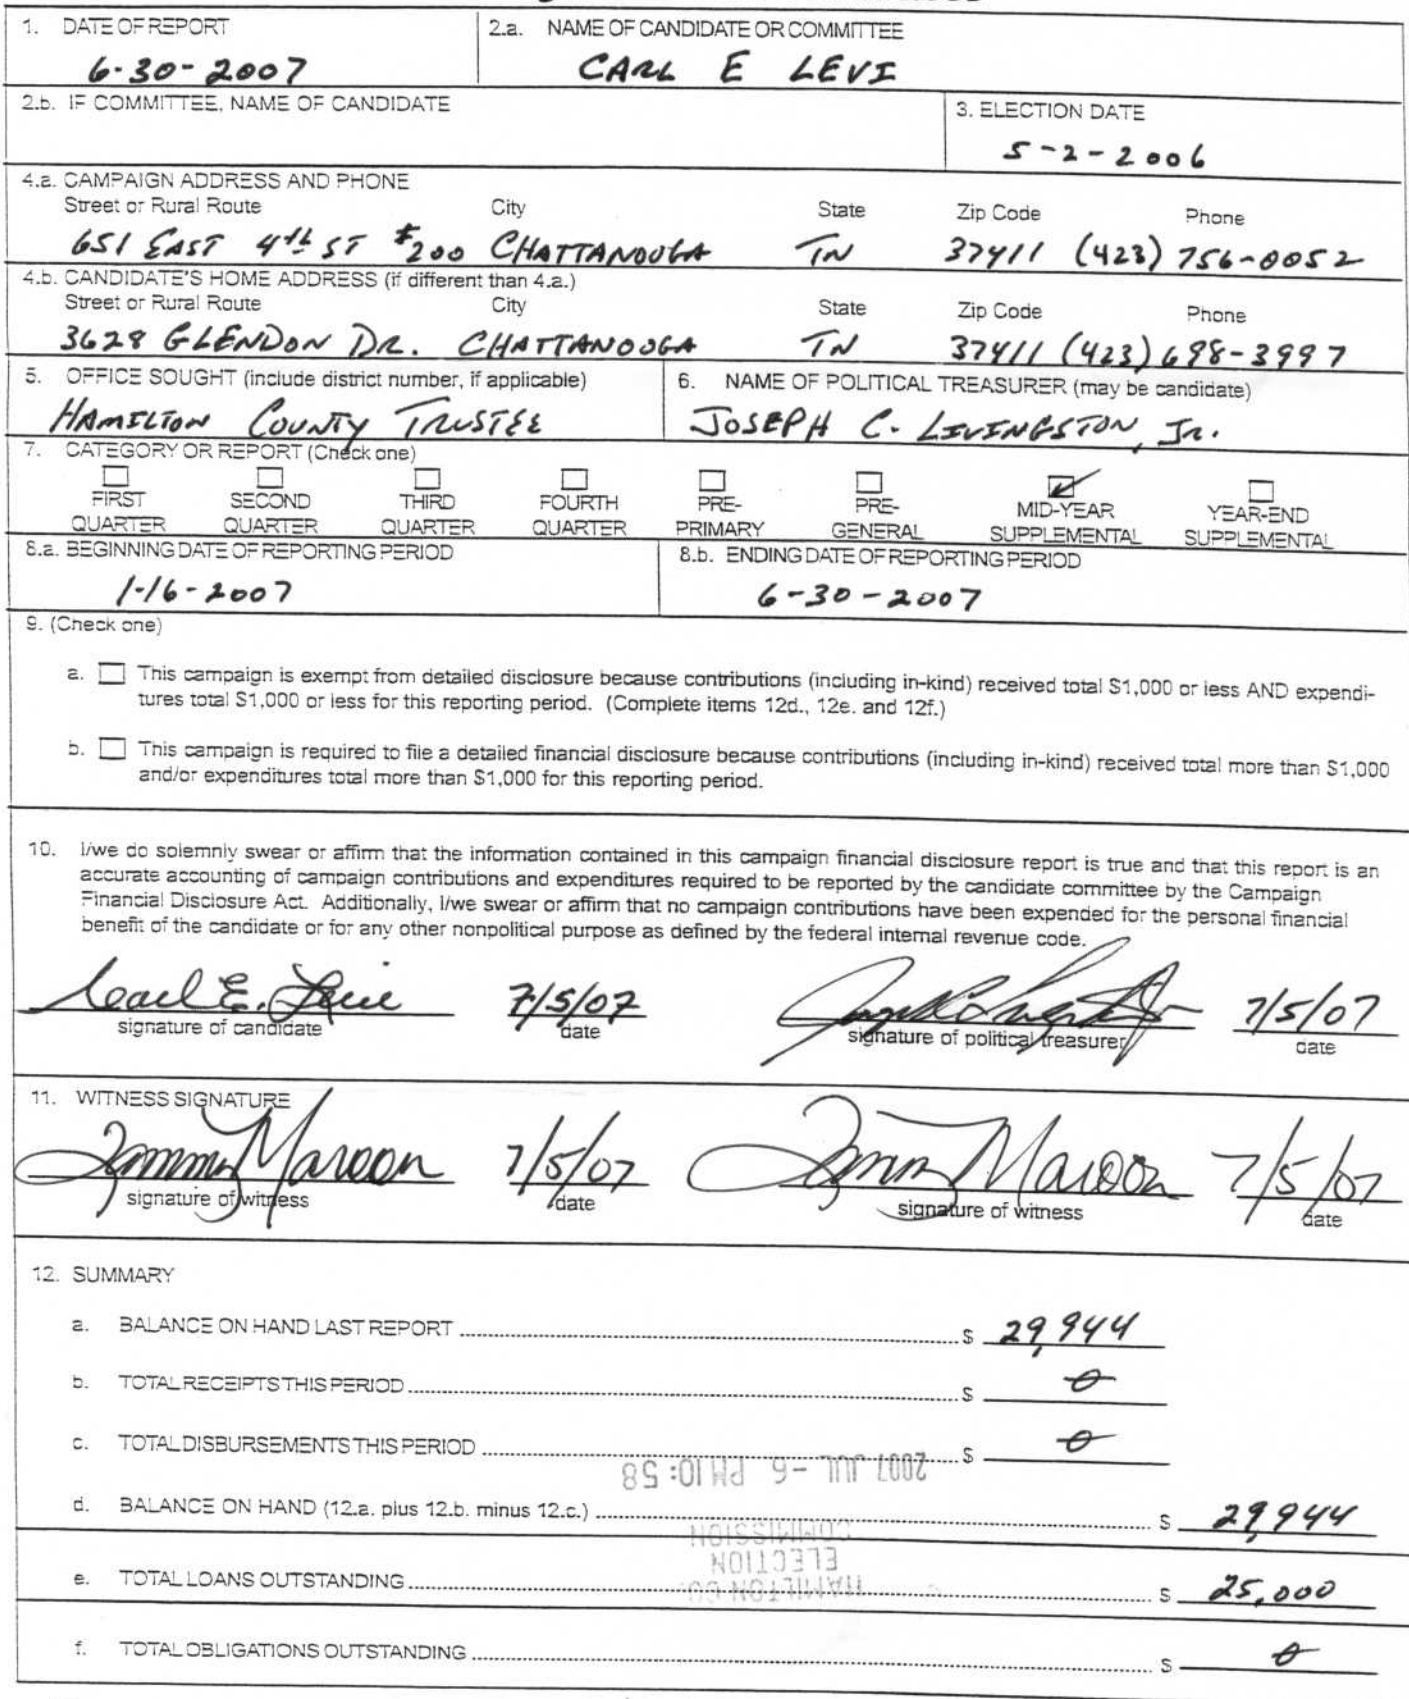 1. DATE OF REPORT
6-30-2007
2.a. NAME OF CANDIDATE OR COMMITTEE
CARL E LEVI
2.b. IF COMMITTEE, NAME OF CANDIDATE
3. ELECTION DATE
5-2-2006
4.a. CAMPAIGN ADDRESS AND PHONE
Street or Rural Route City State Zip Code Phone
651 EAST 4th ST #200 CHATTANOOGA TN 37411 (423) 756-0052
4.b. CANDIDATE'S HOME ADDRESS (if different than 4.a.)
Street or Rural Route City State Zip Code Phone
3628 GLENDON DR. CHATTANOOGA TN 37411 (423) 698-3997
5. OFFICE SOUGHT (include district number, if applicable)
HAMILTON COUNTY TRUSTEE
6. NAME OF POLITICAL TREASURER (may be candidate)
JOSEPH C. LIVINGSTON, JR.
7. CATEGORY OR REPORT (Check one)
FIRST QUARTER
SECOND QUARTER
THIRD QUARTER
FOURTH QUARTER
PRE-PRIMARY
PRE-GENERAL
MID-YEAR SUPPLEMENTAL
YEAR-END SUPPLEMENTAL
8.a. BEGINNING DATE OF REPORTING PERIOD
1-16-2007
8.b. ENDING DATE OF REPORTING PERIOD
6-30-2007
9. (Check one)
a. This campaign is exempt from detailed disclosure because contributions (including in-kind) received total $1,000 or less AND expendi-
tures total $1,000 or less for this reporting period. (Complete items 12d., 12e. and 12f.)
b. This campaign is required to file a detailed financial disclosure because contributions (including in-kind) received total more than $1,000
and/or expenditures total more than $1,000 for this reporting period.
10. I/we do solemnly swear or affirm that the information contained in this campaign financial disclosure report is true and that this report is an
accurate accounting of campaign contributions and expenditures required to be reported by the candidate committee by the Campaign
Financial Disclosure Act. Additionally, I/we swear or affirm that no campaign contributions have been expended for the personal financial
benefit of the candidate or for any other nonpolitical purpose as defined by the federal internal revenue code.
Carl E. Levi 7/5/07 7/5/07
signature of candidate date signature of political treasurer date
11. WITNESS SIGNATURE
Tammy Maroon 7/5/07 Tammy Maroon 7/5/07
signature of witness date signature of witness date
12. SUMMARY
a. BALANCE ON HAND LAST REPORT $ 29,944
b. TOTAL RECEIPTS THIS PERIOD $ 0
c. TOTAL DISBURSEMENTS THIS PERIOD $ 0
2007 JUL -6 PM 10: 58
d. BALANCE ON HAND (12.a. plus 12.b. minus 12.c.) $ 29,944
COMMISSION
ELECTION
HAMILTON CO.
e. TOTAL LOANS OUTSTANDING $ 25,000
f. TOTAL OBLIGATIONS OUTSTANDING $ 0